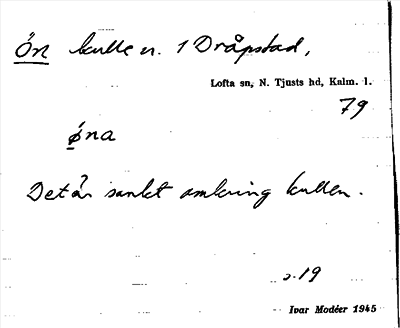 Ön kulle n. 1 Dråpstad,
Lofta sn, N. Tjusts hd, Kalm. l.
79
øna
Det är sankt omkring kullen.
s. 19
Ivar Modéer 1945